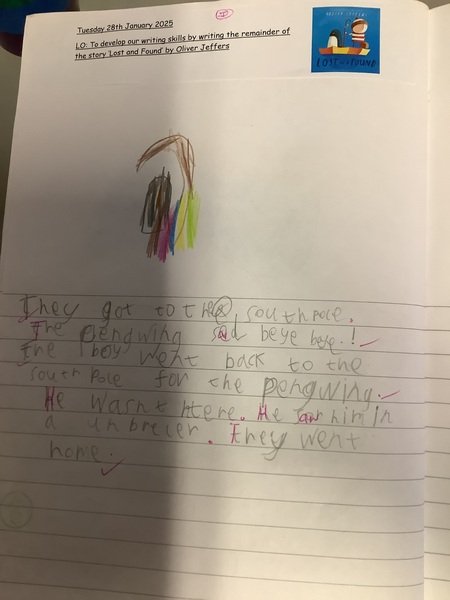 Tuesday 28th January 2025
LO: To develop our writing skills by writing the remainder of
the story 'Lost and Found' by Oliver Jeffers
OLIVER JEFFERS
LOST AND FOUND
They got to the south pole.
The pengwing sad beye beye.!
The boy went back to the
south pole for the pengwing.
He wasnt htere. He saw him in
a unbreler. They went
home.